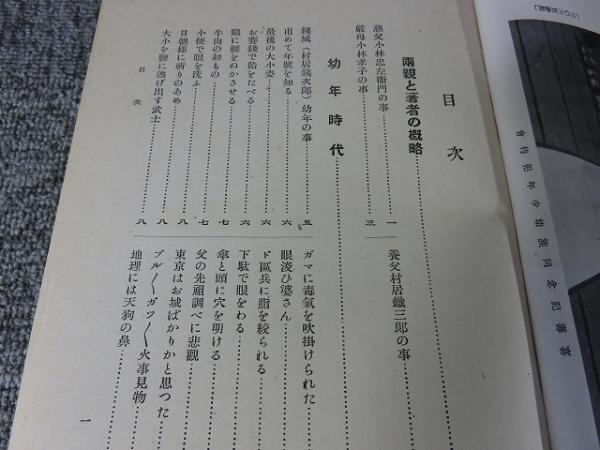 目次
兩親と著者の概略
慈父小林忠左衞門の事……一
嚴母小林孝子の事……三
養父村居鐵三郎の事……
幼年時代
錢城(村居銕次郎)幼年の事……五
甫めて年號を知る……六
最後の大小姿……六
お賽錢で飴をたべる……六
鷄に腰をぬかさせる……七
牛肉の初もの……七
小便で眼を洗ふ……七
日朝樣に祈りのあめ……八
大小を腰に逃げ出す武士……八
ガマに毒氣を吹掛けられた
眼浚ひ婆さん……
ド區兵に脂を絞られる
下駄で眼をわる……
傘と頭に穴を明ける……
父の先祖調べに悲觀……
東京はお城ばかりかと思つた
ブル〳〵ガツ〳〵火事見物
地理には天狗の鼻……
目次
一